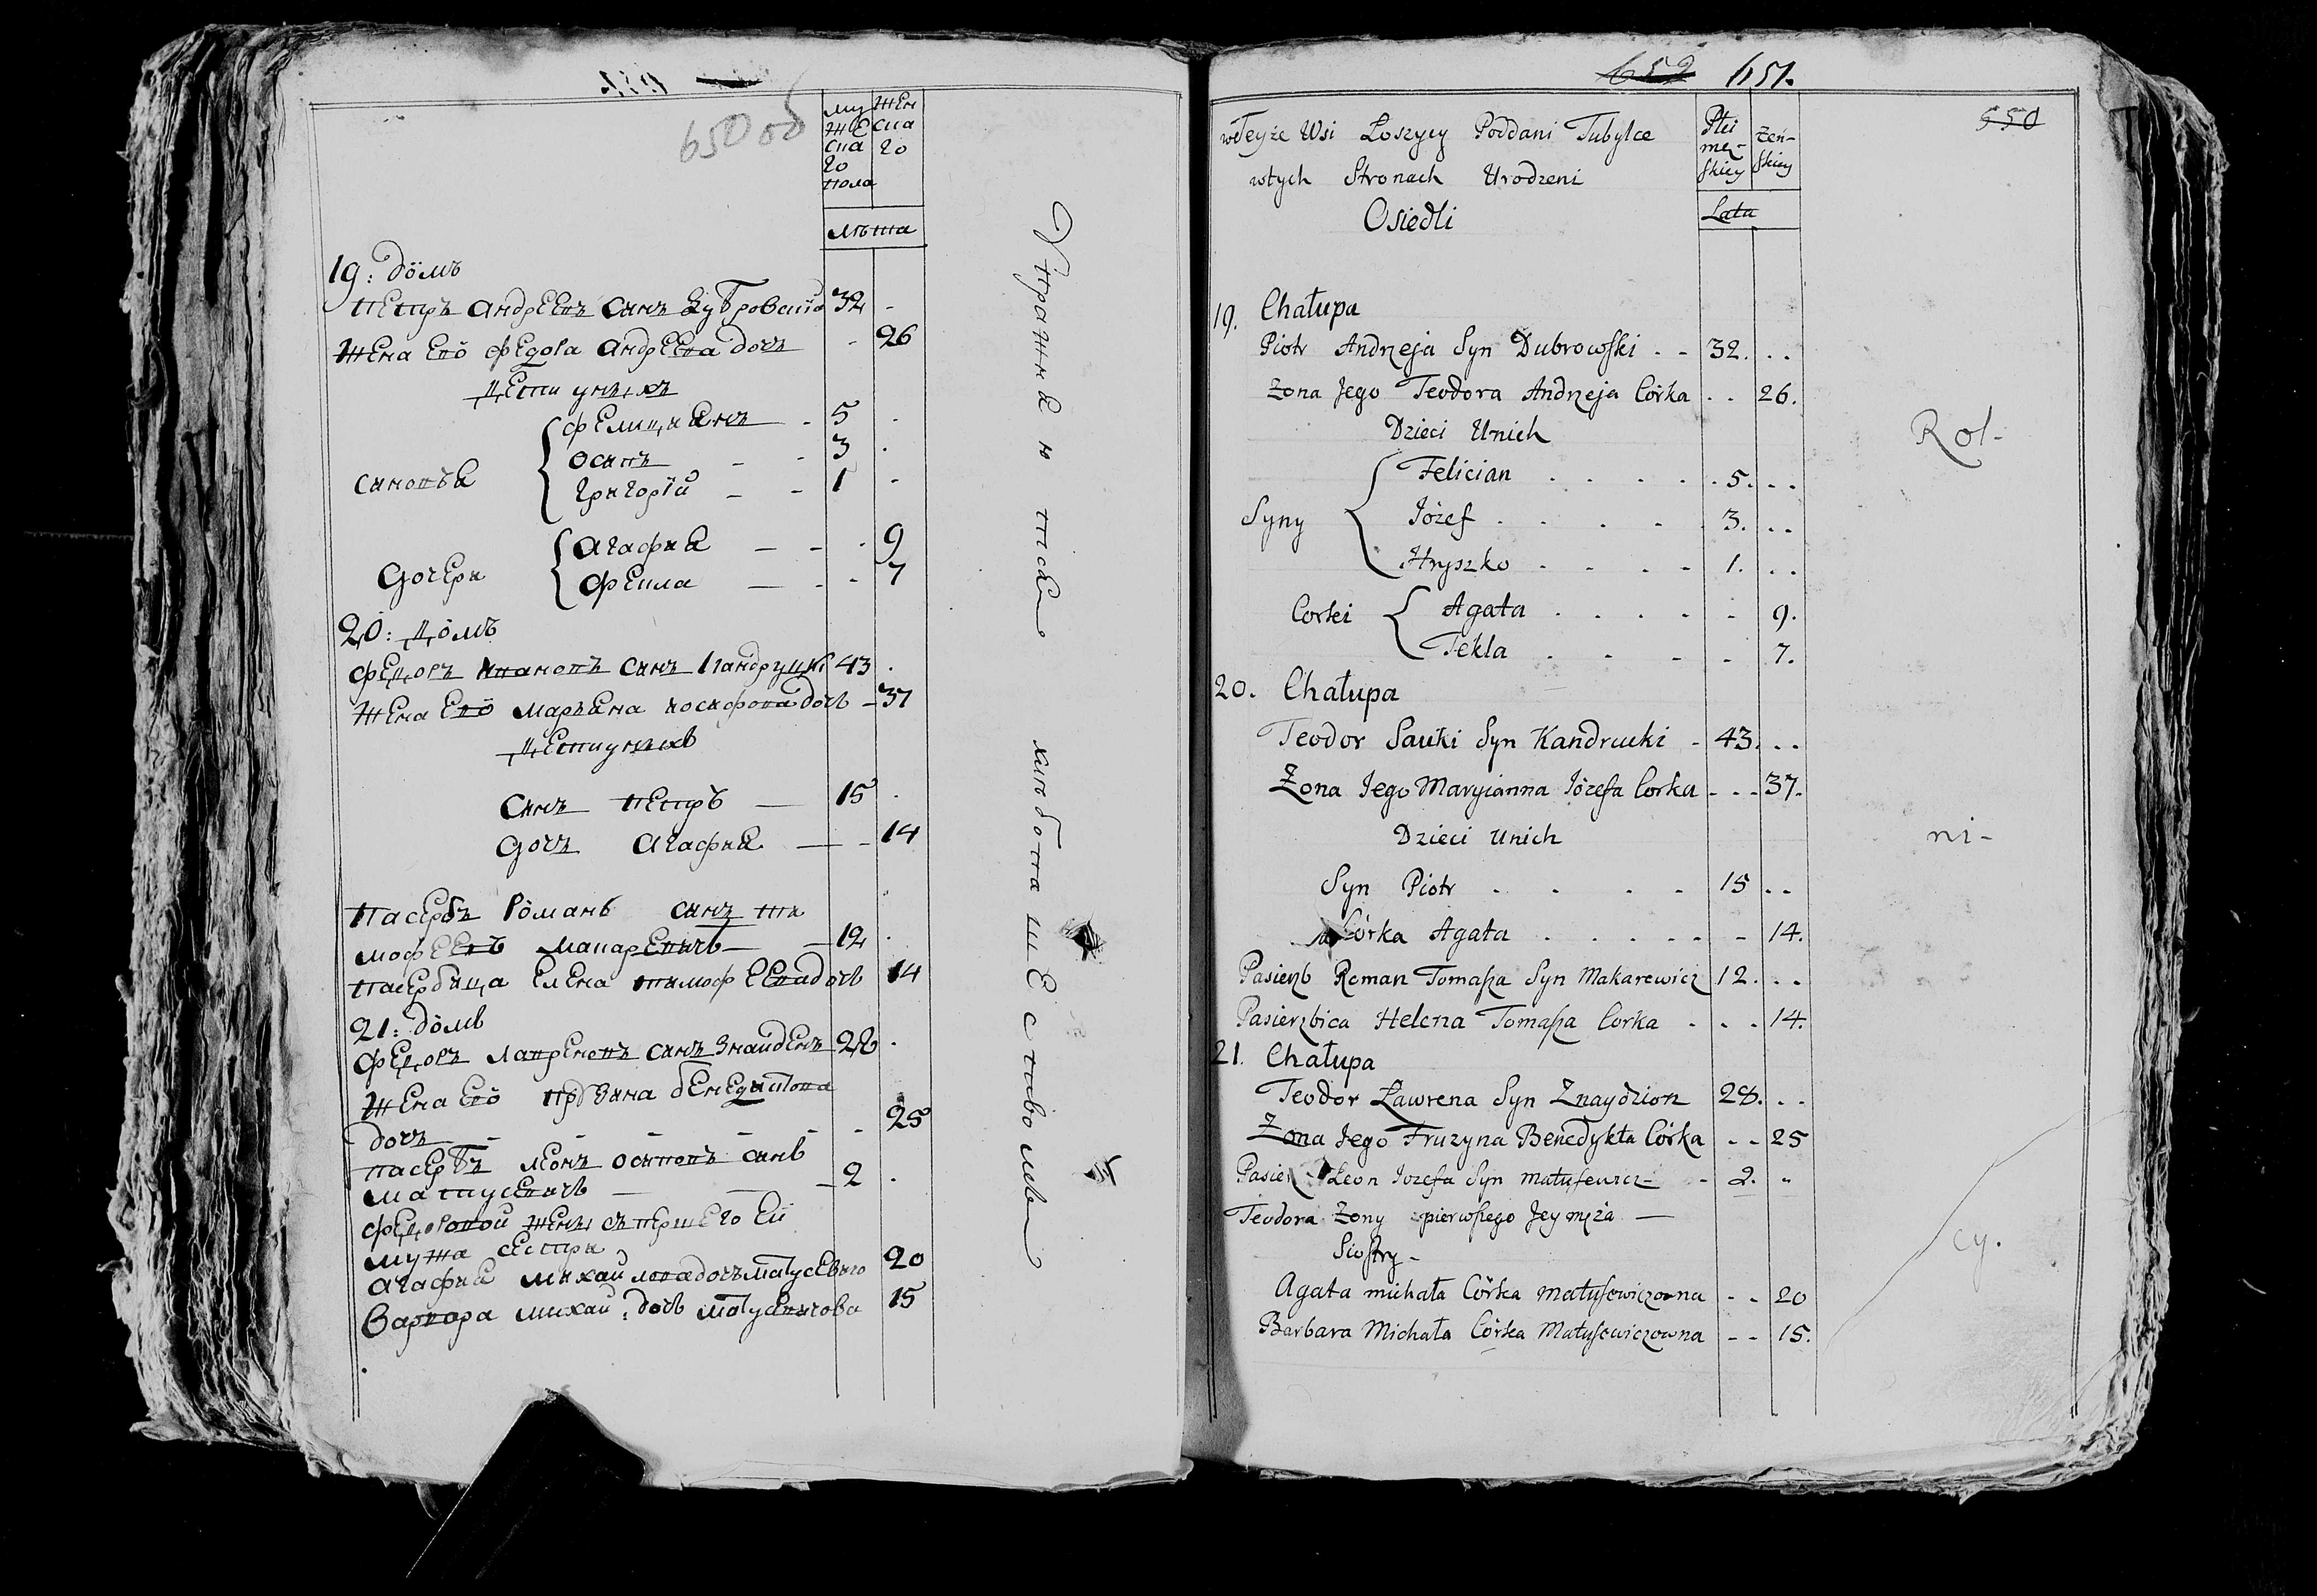 650 об
му
же
ска
го
пола
жен
ска
го
лѣта
19: домъ
петръ андреевъ синъ дубровский 32 -
жена его федора андреева дочь - 26
дети унихъ
синовья
фелициянъ - 5 .
осипъ - - 3 .
григорій - - 1 -
дочери
агафия - - . 9
фекла - - - 7
20: домъ
федоръ ивановъ синъ кандруцки 43 .
жена его марьяна иосифова дочь - 37
дети унихъ
синъ петръ - 15 .
дочь агафия - - 14
пасербъ романъ синъ ти
мофеевъ макаревичъ - 12 .
пасербица елена тимофеевадочь 14
21: домъ
федоръ лавреновъ синъ знайденъ 28 .
жена его прузина бенедиктова
дочь - - - - - - 25
пасербъ леонъ осиповъ синъ
матусевичъ - - - 2 .
федоровой жени съпершего еи
мужа сестри
агафия михайловадочъ матусевичо 20
варвара михай: дочь матусевичова 15
хлѣбопашествомъ
652 651.
550
wteyże Wsi Łoszycy Poddani Tubylce
wtych Stronach Urodzeni
Osiedli
Płci
męz-
skiey
żeń-
skiey
Lata
19. Chałupa
Piotr Andrzeja Syn Dubrowski . - 32. . .
Żona Jego Teodora Andrzeja Córka . . 26.
Dzieci Unich
Syny
Felician . . . . . 5. . .
Józef . . . . . 3. . .
Hryszko . . . . 1. . .
Corki
Agata . . . . - 9.
Tekla . . . - 7.
20. Chałupa
Teodor Sauki Syn Kandrucki - 43. . .
Żona Jego Maryianna Józefa Corka - - - 37.
Dzieci Unich
Syn Piotr . . . . 15 . .
Córka Agata . . . . . - 14.
Pasierzb Roman Tomasza Syn Makarewicz 12. . .
Pasierzbica Helena Tomasza Corka . . . 14.
21. Chałupa
Teodor Ławrena Syn Znaydzion 28. . .
Żona Jego Fruzyna Benedykta Córka - - 25
Pasierz Leon Jozefa Syn Matusewicz - - 2. "
Teodora Żony zpierwszego Jey męża -
Siostry -
Agata michała Córka Matusewiczowna - - 20
Barbara Michała Córka Matusewiczowna - - 15.
Rol-
ni-
cy.